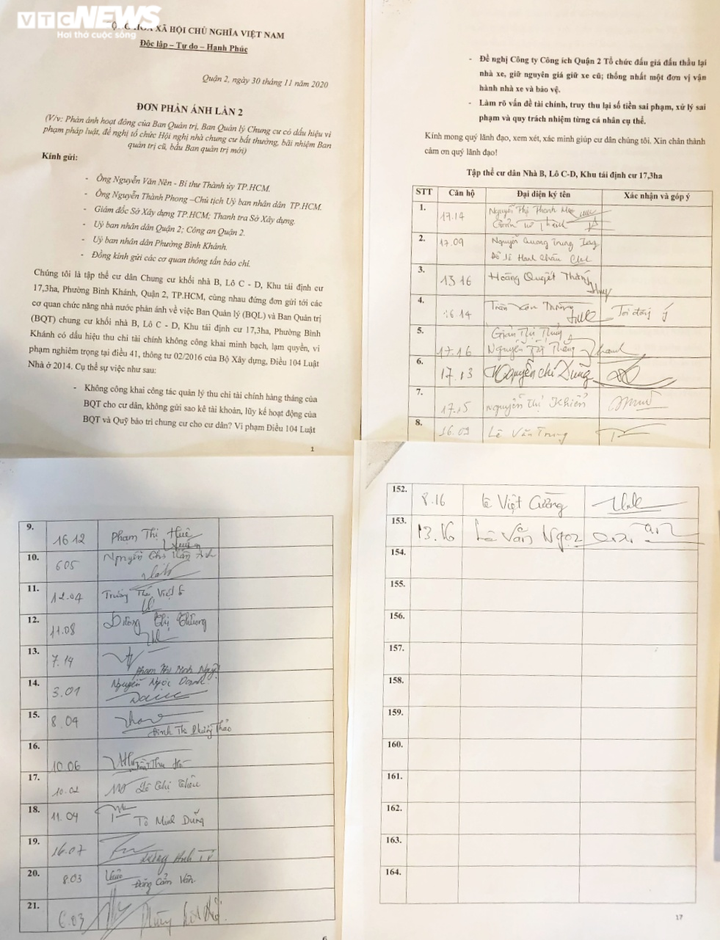 VTC NEWS
Hơi thở cuộc sống
HÒA XÃ HỘI CHỦ NGHĨA VIỆT NAM
Độc lập – Tự do – Hạnh Phúc
Quận 2, ngày 30 tháng 11 năm 2020
ĐƠN PHẢN ÁNH LẦN 2
(V/v: Phản ánh hoạt động của Ban Quản trị, Ban Quản lý Chung cư có dấu hiệu vi
phạm pháp luật, đề nghị tổ chức Hội nghị nhà chung cư bất thường, bãi nhiệm Ban
quản trị cũ, bầu Ban quản trị mới)
Kính gửi:
- Ông Nguyễn Văn Nên - Bí thư Thành ủy TP.HCM.
- Ông Nguyễn Thành Phong –Chủ tịch Uỷ ban nhân dân TP.HCM.
- Giám đốc Sở Xây dựng TP.HCM; Thanh tra Sở Xây dựng.
- Uỷ ban nhân dân Quận 2; Công an Quận 2.
- Uỷ ban nhân dân Phường Bình Khánh.
- Đồng kính gửi các cơ quan thông tấn báo chí.
Chúng tôi là tập thể cư dân Chung cư khối nhà B, Lô C - D, Khu tái định cư
17,3ha, Phường Bình Khánh, Quận 2, TP.HCM, cùng nhau đứng đơn gửi tới các
cơ quan chức năng nhà nước phản ánh về việc Ban Quản lý (BQL) và Ban Quản trị
(BQT) chung cư khối nhà B, Lô C - D, Khu tái định cư 17,3ha, Phường Bình
Khánh có dấu hiệu thu chi tài chính không công khai minh bạch, lạm quyền, vi
phạm nghiêm trọng tại điều 41, thông tư 02/2016 của Bộ Xây dựng, Điều 104 Luật
Nhà ở 2014. Cụ thể sự việc như sau:
- Không công khai công tác quản lý thu chi tài chính hàng tháng của
BQT cho cư dân, không gửi sao kê tài khoản, lũy kế hoạt động của
BQT và Quỹ bảo trì chung cư cho cư dân? Vi phạm Điều 104 Luật
1
- Đề nghị Công ty Công ích Quận 2 Tổ chức đấu giá đấu thầu lại
nhà xe, giữ nguyên giá giữ xe cũ; thống nhất một đơn vị vận
hành nhà xe và bảo vệ.
- Làm rõ vấn đề tài chính, truy thu lại số tiền sai phạm, xử lý sai
phạm và quy trách nhiệm từng cá nhân cụ thể.
Kính mong quý lãnh đạo, xem xét, xác minh giúp cư dân chúng tôi. Xin chân thành
cảm ơn quý lãnh đạo!
Tập thể cư dân Nhà B, Lô C-D, Khu tái định cư 17,3ha
STT Căn hộ Đại diện ký tên Xác nhận và góp ý
1. 19.14 Nguyễn Thị Thanh
2. 17.09 Nguyễn Quang Trung
3. 13 16 Hoàng Quyết Thắng
4. 16.14 Trần Văn Thắng Tôi đồng ý
5. 17.16
6. 17.13 Nguyễn Chí Dũng
7. 17.15 Nguyễn Thị Khiển
8. 16.09 Lê Văn Trung
9. 16 12 Phạm Thị Huệ
10. 605 Nguyễn
11. 12.04 Trương Thị Việt
12. 11.08 Dương Thị
13. 7.14 Phạm Thị Minh
14. 3.01 Nguyễn Ngọc
15. 8.09 Đinh Thị Phương Thảo
16. 10.06
17. 10.02 Lê Chí
18. 11.04 Tô Minh Dũng
19. 16.07
20. 8.03 Đặng Cẩm Vân
21. 6.03
6
152. 8.16 Lê Việt Cường
153. 13.16 Lê Văn Ngọc
154.
155.
156.
157.
158.
159.
160.
161.
162.
163.
164.
17